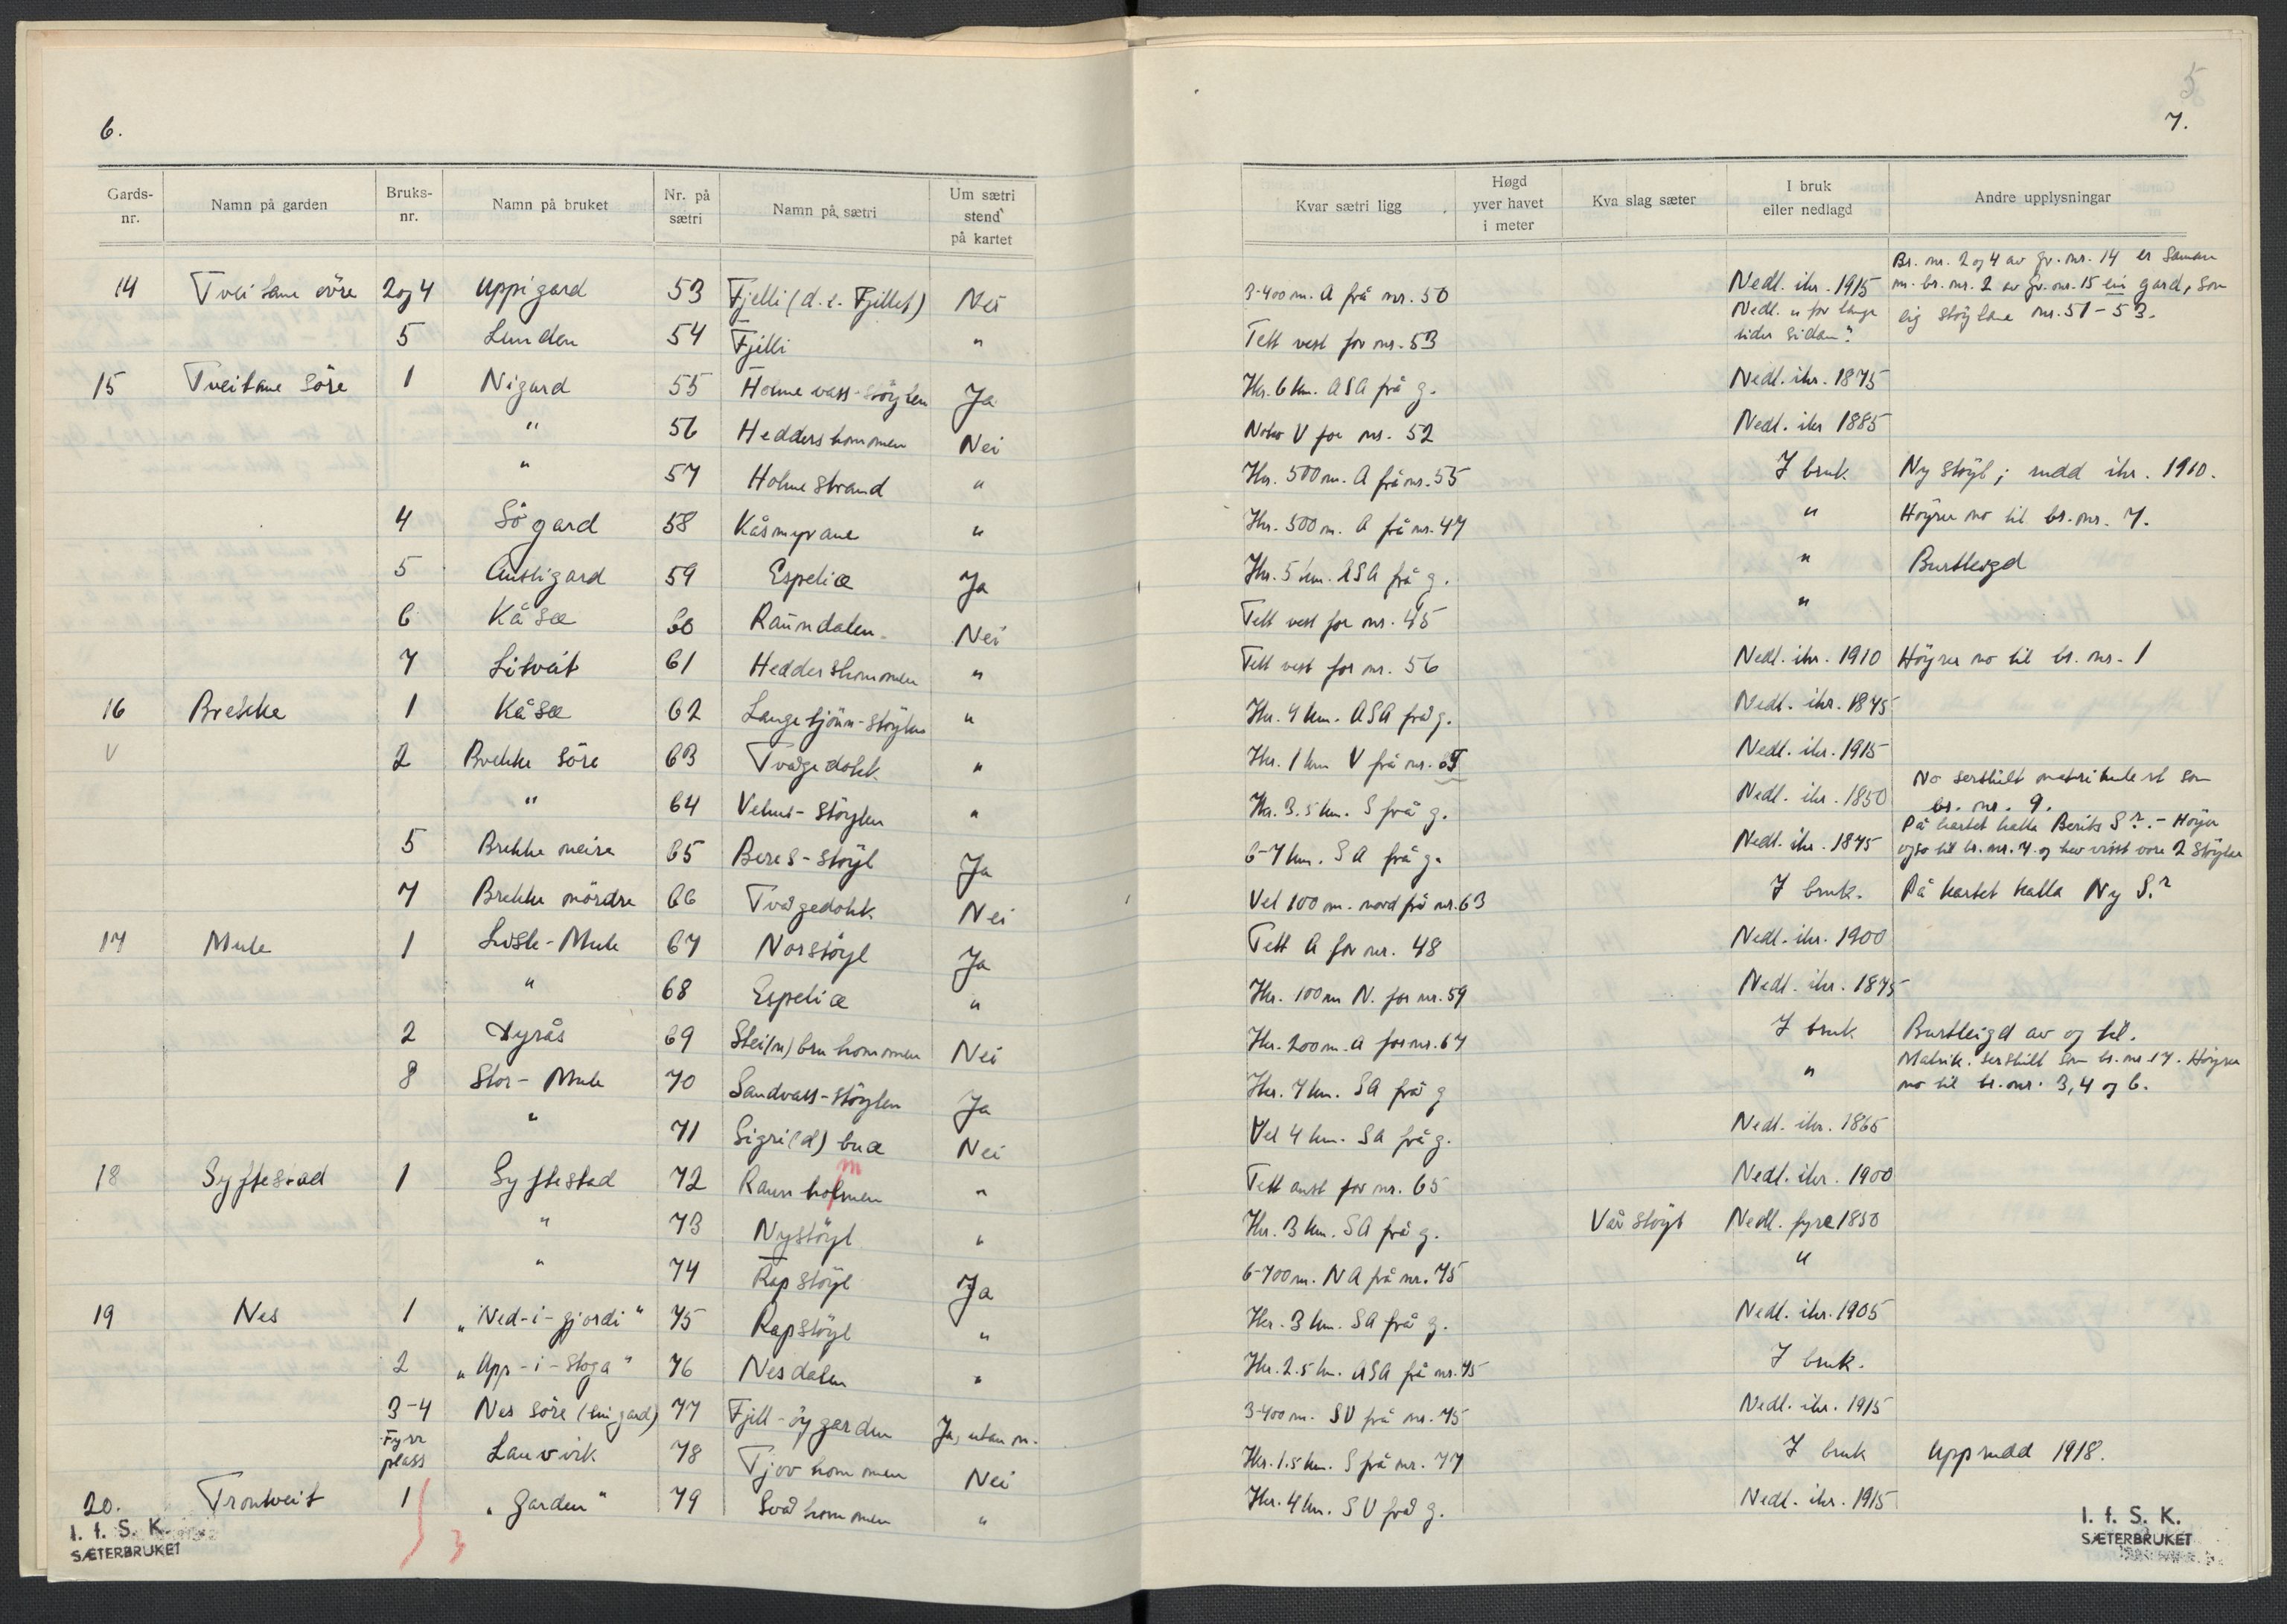 6.
Gards-nr. Namn på garden Bruks-nr. Namn på bruket Nr. på sætri Namn på sætri Um sætri stend på kartet
14 Tveitane övre 2 og 4 Uppigard 53 Fjelli (d.e. Fjillet) Nei
5 Lunden 54 Fjelli "
15 Tveitane Söre 1 Nigard 55 Holmevass-stöylen Ja
" 56 Heddershommen Nei
" 57 Holmestrand "
4 Sögard 58 Kåsmyrane "
5 Austigard 59 Espeliæ Ja
6 Kåsæ 60 Raundalen Nei
7 Litveit 61 Heddershommen "
16 Brekke 1 Kåsæ 62 Langetjönn-stöylen "
V 2 Brekke Söre 63 Tvågedokk "
" 64 -Stöylen "
5 Brekke neire 65 Beres-stöyl Ja
7 Brekke nördre 66 Tvågedokk Nei
17 Mule 1 Lisle-Mule 67 Norstöyl Ja
" 68 Espeliæ "
2 Dyrås 69 Stei(n)bruhommen Nei
8 Stor-Mule 70 Sandvass-stöylen Ja
" 71 Sigri(d)buæ Nei
m
18 Syftestad 1 Syftestad 72 Raunholmen "
" 73 Nystöyl "
" 74 Rapstöyl Ja
19 Nes 1 "Ned-i-gjordi" 75 Rapstöyl "
2 "Upp-i-stoga" 76 Nesdalen "
3-4 Nes söre (ein gard) 77 Fjill-öygarden Ja, utan n.
Fyrr plass Lauvvik 78 Tjovhommen Nei
20. Trontveit 1 "Garden" 79 Svadhommen "
3
I. f. S. K.
SÆTERBRUKET
5
7.
Kvar sætri ligg Høgd yver havet i meter Kva slag sæter I bruk eiler nedlagd Andre upplysningar
3-400 m. A frå nr. 50 Nedl. ikr. 1915 Br. nr. 2 og 4 av gr. nr. 14 er saman m. br. nr. 2 av gr. nr. 15 ein gard, som eig stöylane nr. 51-53.
Tett vest for nr. 53 Nedl. "for lange tider sidan".
Ikr. 6 km. ASA frå g. Nedl. ikr. 1875
V for nr. 52 Nedl. ikr 1885
Ikr. 500 m. A frå nr. 55 I bruk Ny stöyl; rudd ikr. 1910.
Ikr. 500 m. A frå nr. 47 " Höyrer no til br. nr. 7.
Ikr. 5 km. ASA frå g. " Burtleigd
Tett vest for nr. 45 "
Tett vest for nr. 56 Nedl. ikr. 1910 Höyrer no til br. nr. 1
Ikr. 4 km. ASA frå g. Nedl. ikr. 1845
Ikr. 1 km V frå nr. 65 Nedl. ikr. 1915
Ikr. 3.5 km. S frå g. Nedl. ikr. 1850 No serskilt matrikulert som br. nr. 9.
6-7 km. SA frå g. Nedl. ikr. 1875 På kartet kalla Berits S?. - Höyrer ogso til br. nr. 7 og hev visst vore 2 stöylar
Vel 100 m. nord frå nr. 63 I bruk. På kartet kalla Ny S.?
Tett A for nr. 48 Nedl. ikr. 1900
Ikr. 100 m N. for nr. 59 Nedl. ikr. 1875
Ikr. 200 m. A for nr. 67 I bruk Burtleigd av og til.
Ikr. 7 km. SA frå g " Matrik. serskilt som br. nr 17. Höyrer no til br. nr. 3, 4 og 6.
Vel 4 km. SA frå g. Nedl. ikr. 1865
Tett aust for nr. 65 Nedl. ikr. 1900
Ikr. 3 km. SA frå g. Vårstöyl Nedl. fyre 1850
6-700 m. NA frå nr. 75 "
Ikr. 3 km. SA frå g. Nedl. ikr. 1905
Ikr. 2.5 km. ASA frå nr. 75 I bruk.
3-400 m. SV frå nr. 75 Nedl. ikr. 1915
Ikr. 1.5 km. S frå nr. 77 I bruk Upprudd 1918.
Ikr. 4 km. SV frå g. Nedl. ikr. 1915
I. f. S. K.
SÆTERBRUKET